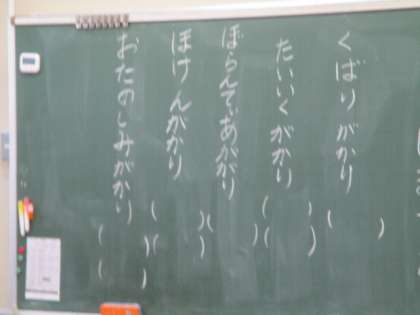 くばりがかり
( )
たいいくがかり
( )
( )
ぼらんてぃあがかり
( )
ほけんがかり
( )
( )
おたのしみがかり
( )
( )